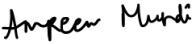 Ampeen Mundi